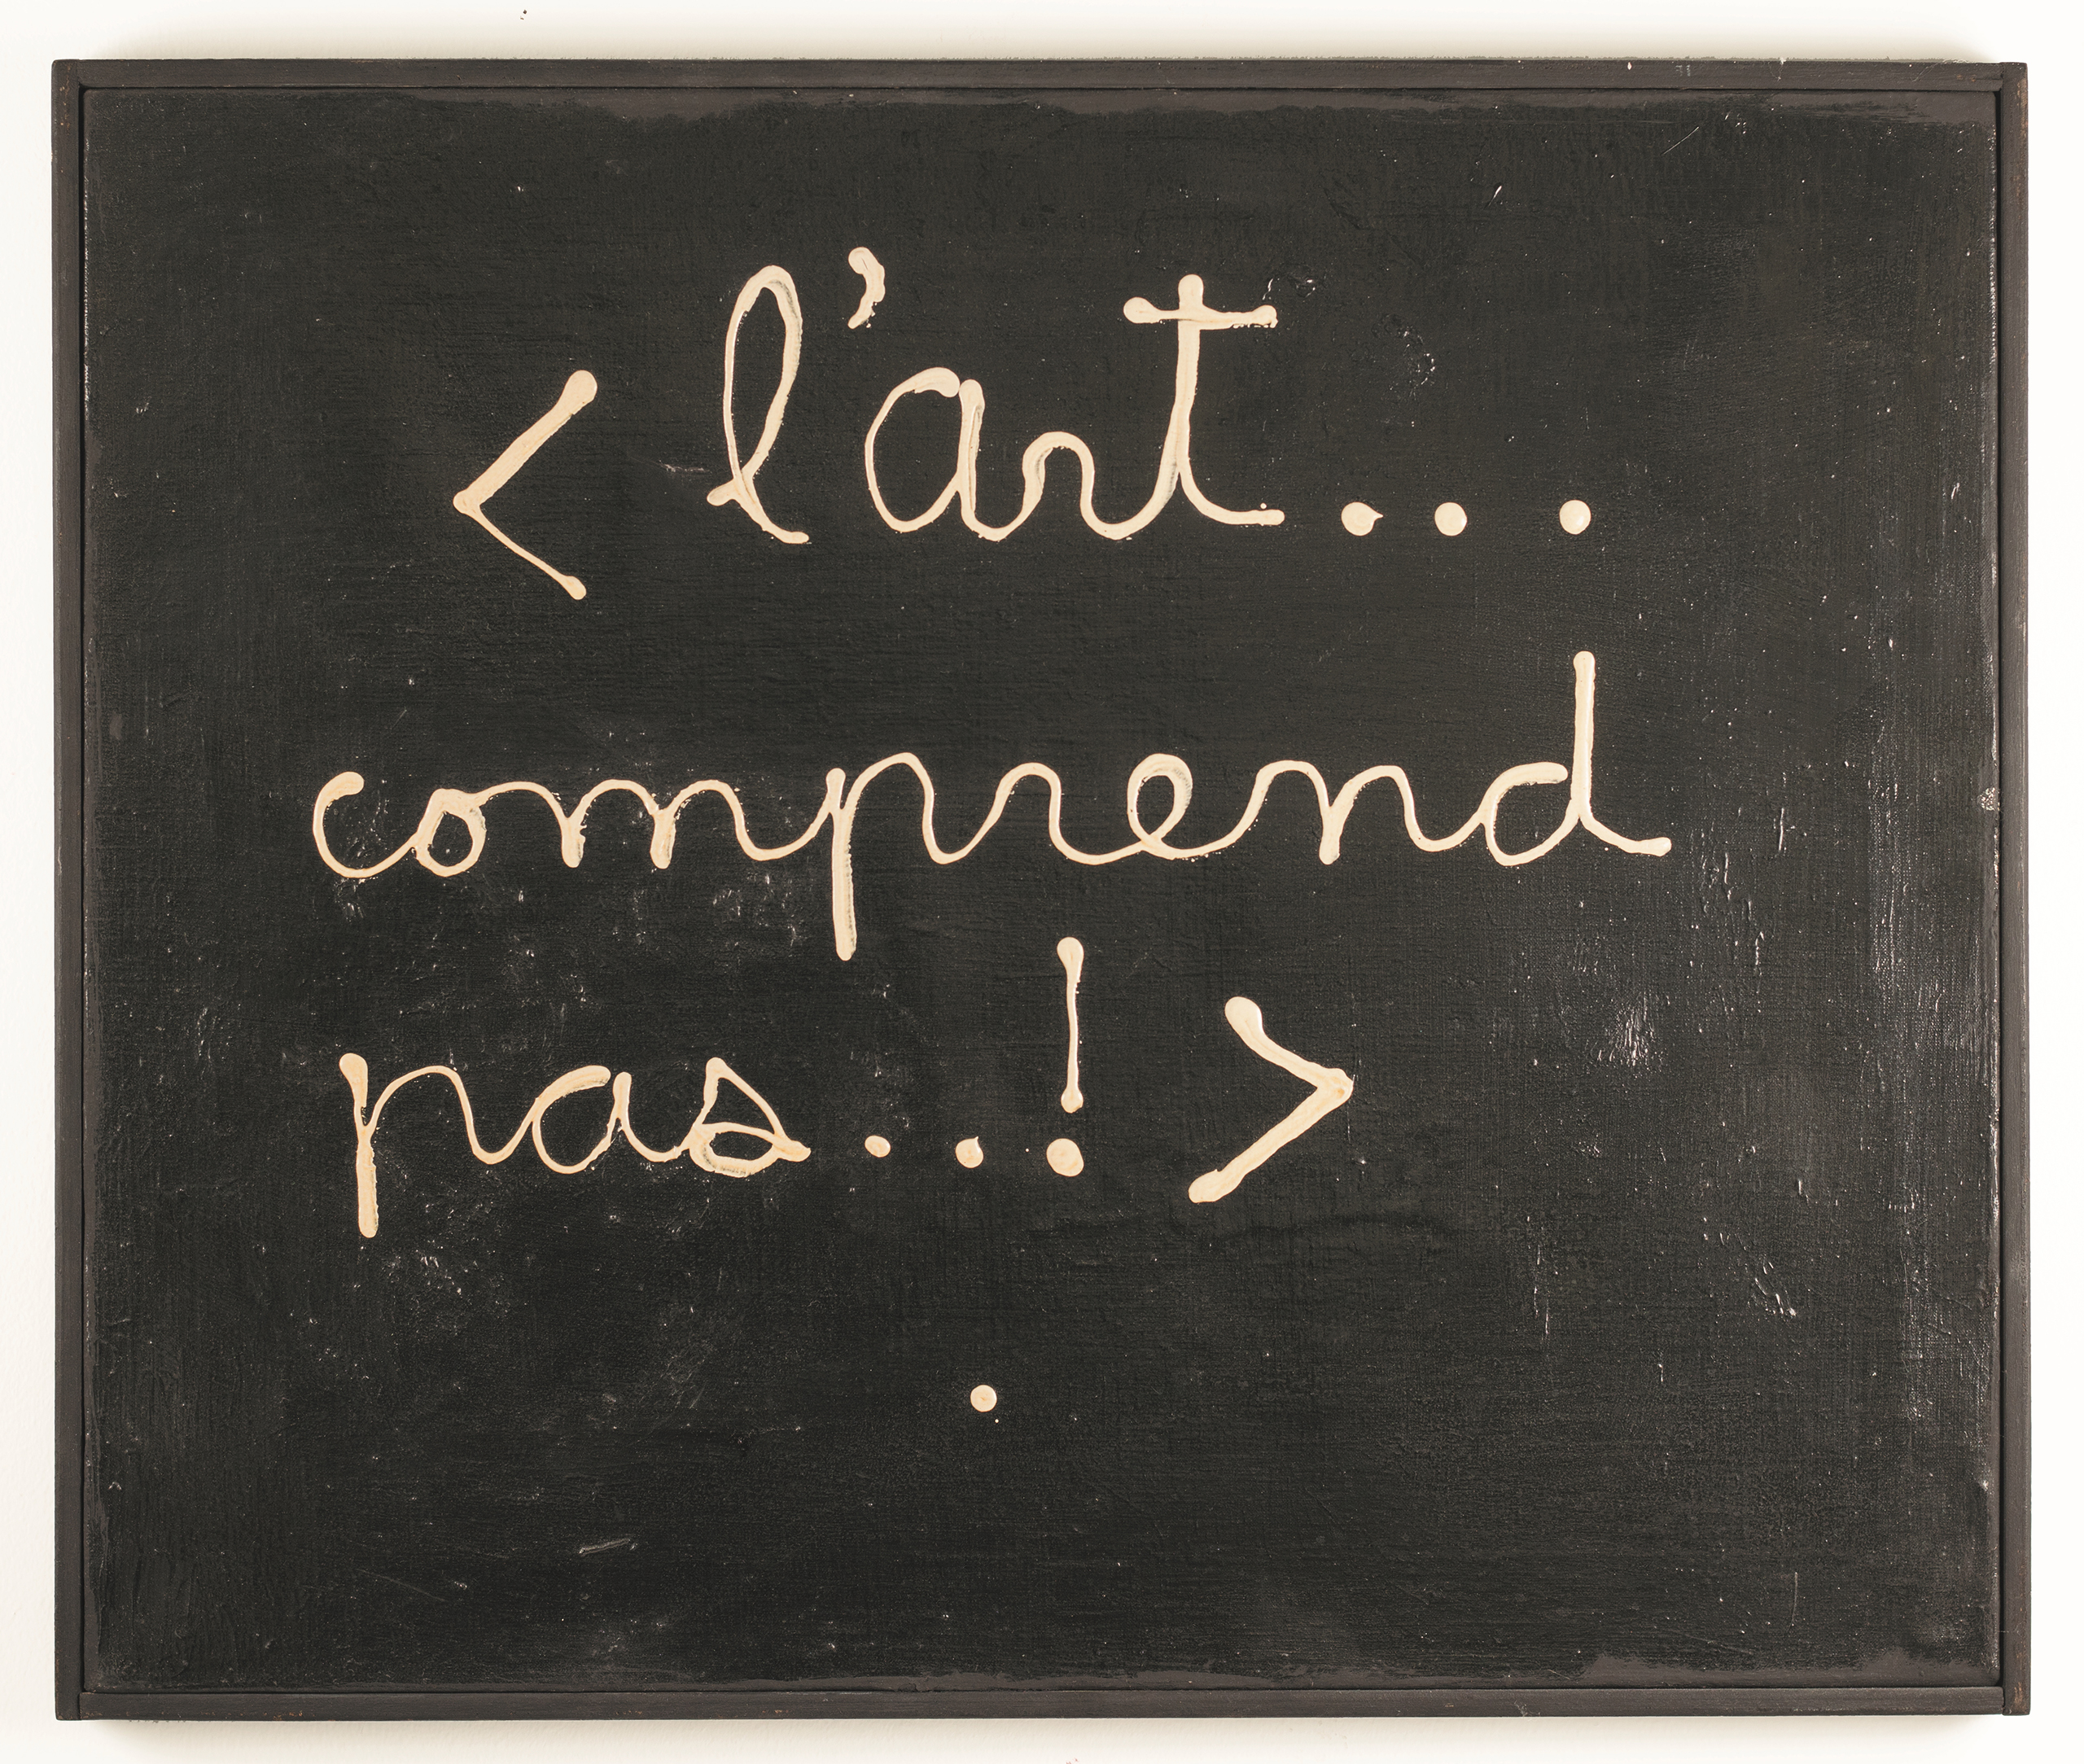 < l'art...
comprend
pas...! >
.